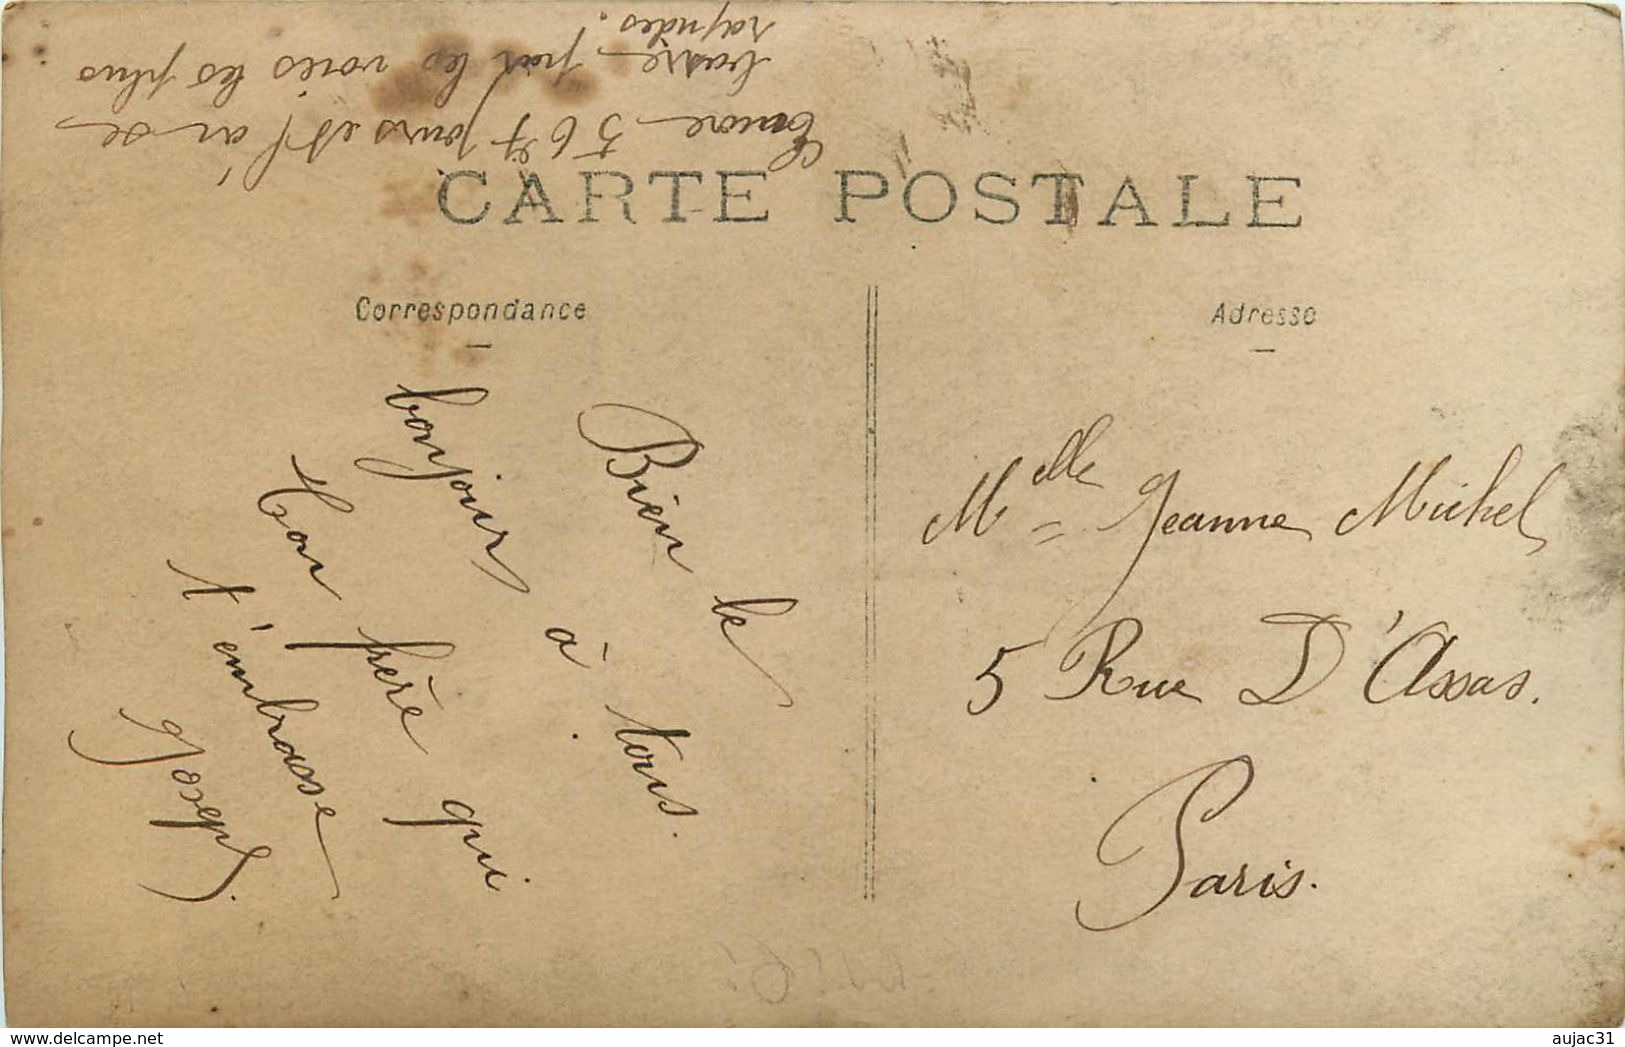 Encore 5 6 et 7 jours et l'on se
basse par les voies les plus
rapides.
CARTE POSTALE
Correspondance
Bien le
bonjour à tous.
Ton frère qui
t'embrasse
Joseph.
Adresse
Melle Jeanne Michel
5 Rue D'Assas.
Paris.
www.delcampe.net
aujac31